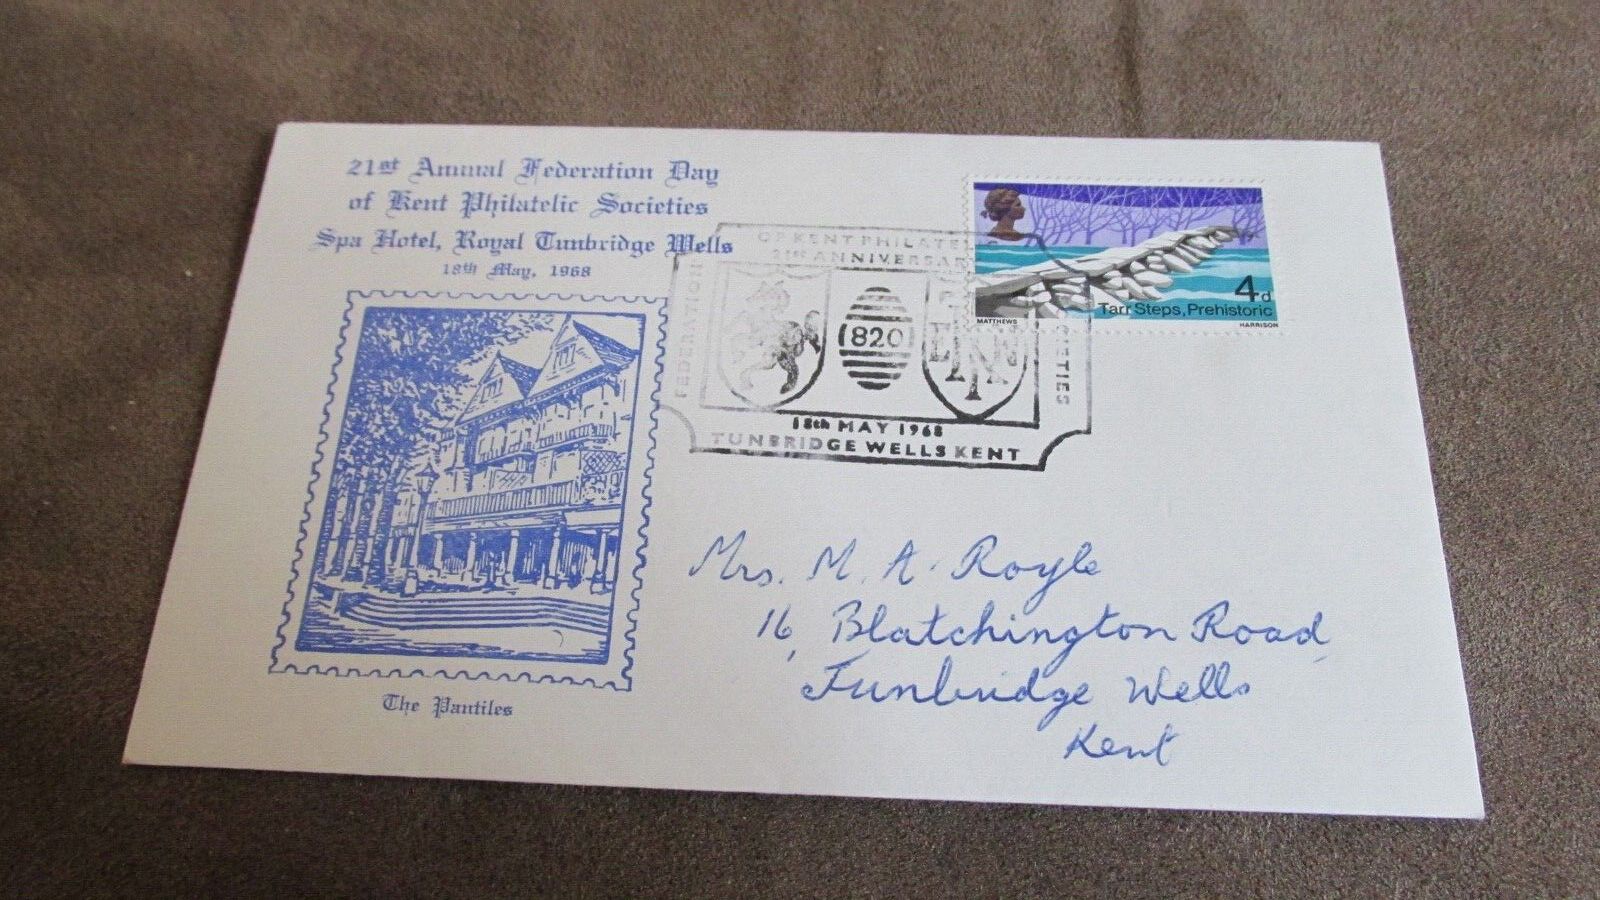 21st Annual Federation Day
of Kent Philatelic Societies
Spa Hotel, Royal Tunbridge Wells
18th May, 1968
The Pantiles
FEDERATION
OF KENT PHILATELIC
SOCIETIES
21ST ANNIVERSARY
820
18th MAY 1968
TUNBRIDGE WELLS KENT
4d
Tarr Steps, Prehistoric
MATTHEWS
HARRISON
Mrs. M. A. Royle
16, Blatchington Road,
Tunbridge Wells
Kent